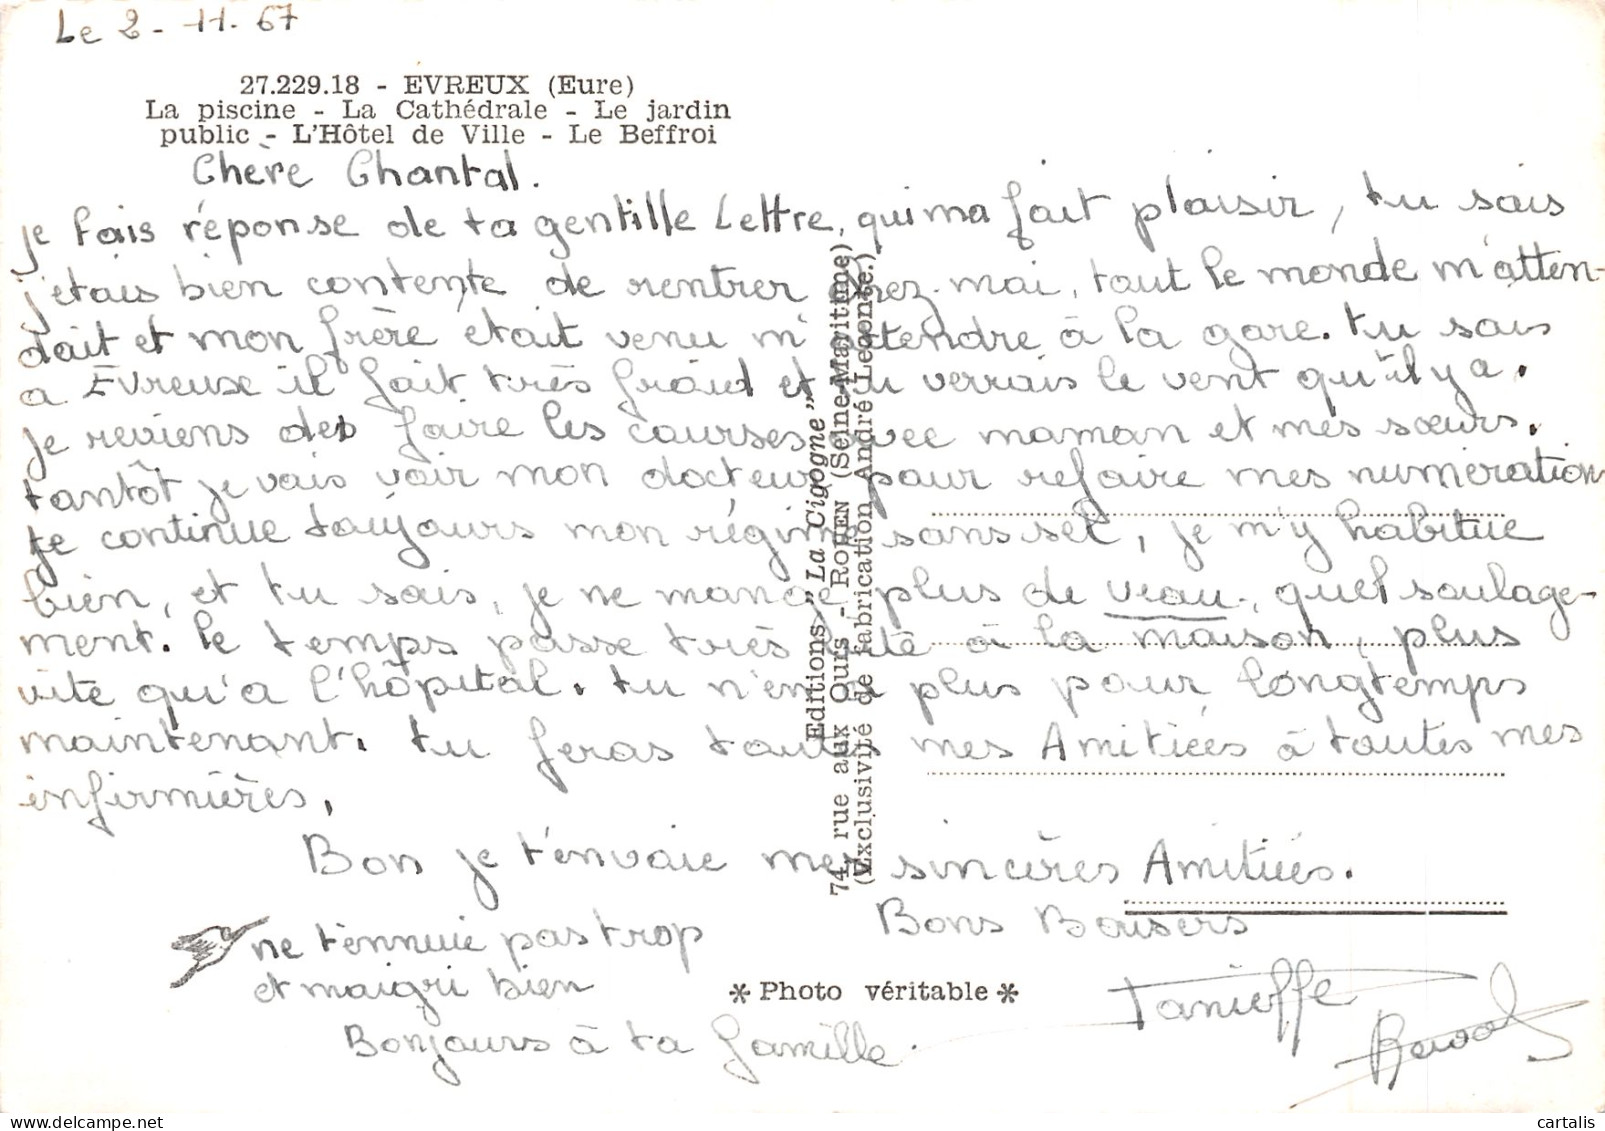 Le 2-11-67
27.229.18 - EVREUX (Eure)
La piscine - La Cathédrale - Le jardin
public - L'Hôtel de Ville - Le Beffroi
Chère Chantal.
je fais réponse de ta gentille lettre, qui ma fait plaisir, tu sais
j'étais bien contente de rentrer chez moi, tout le monde m'atten-
dait et mon frère était venu m'attendre à la gare. tu sais
a Evreuse il fait très froid et tu verrais le vent qu'il y a.
je reviens des faire les courses avec maman et mes sœurs.
tantôt je vais voir mon docteur pour refaire mes numération
je continue toujours mon régime sans sel, je m'y habitue
bien, et tu sais, je ne mange plus de veau, quel soulage-
ment. le temps passe très vite à la maison, plus
vite qu'a l'hôpital. tu n'en a plus pour longtemps
maintenant. tu feras toutes mes Amitiées à toutes mes
infirmières.
Bon je t'envoie mes sincères Amitiées.
Bons Baisers
ne t'ennuie pas trop
et maigri bien
Bonjours à ta famille.
Editions "La Cigogne"
74, rue aux Ours - ROUEN (Seine-Maritime)
(Exclusivité de fabrication André Leconte.)
* Photo véritable *
cartalis